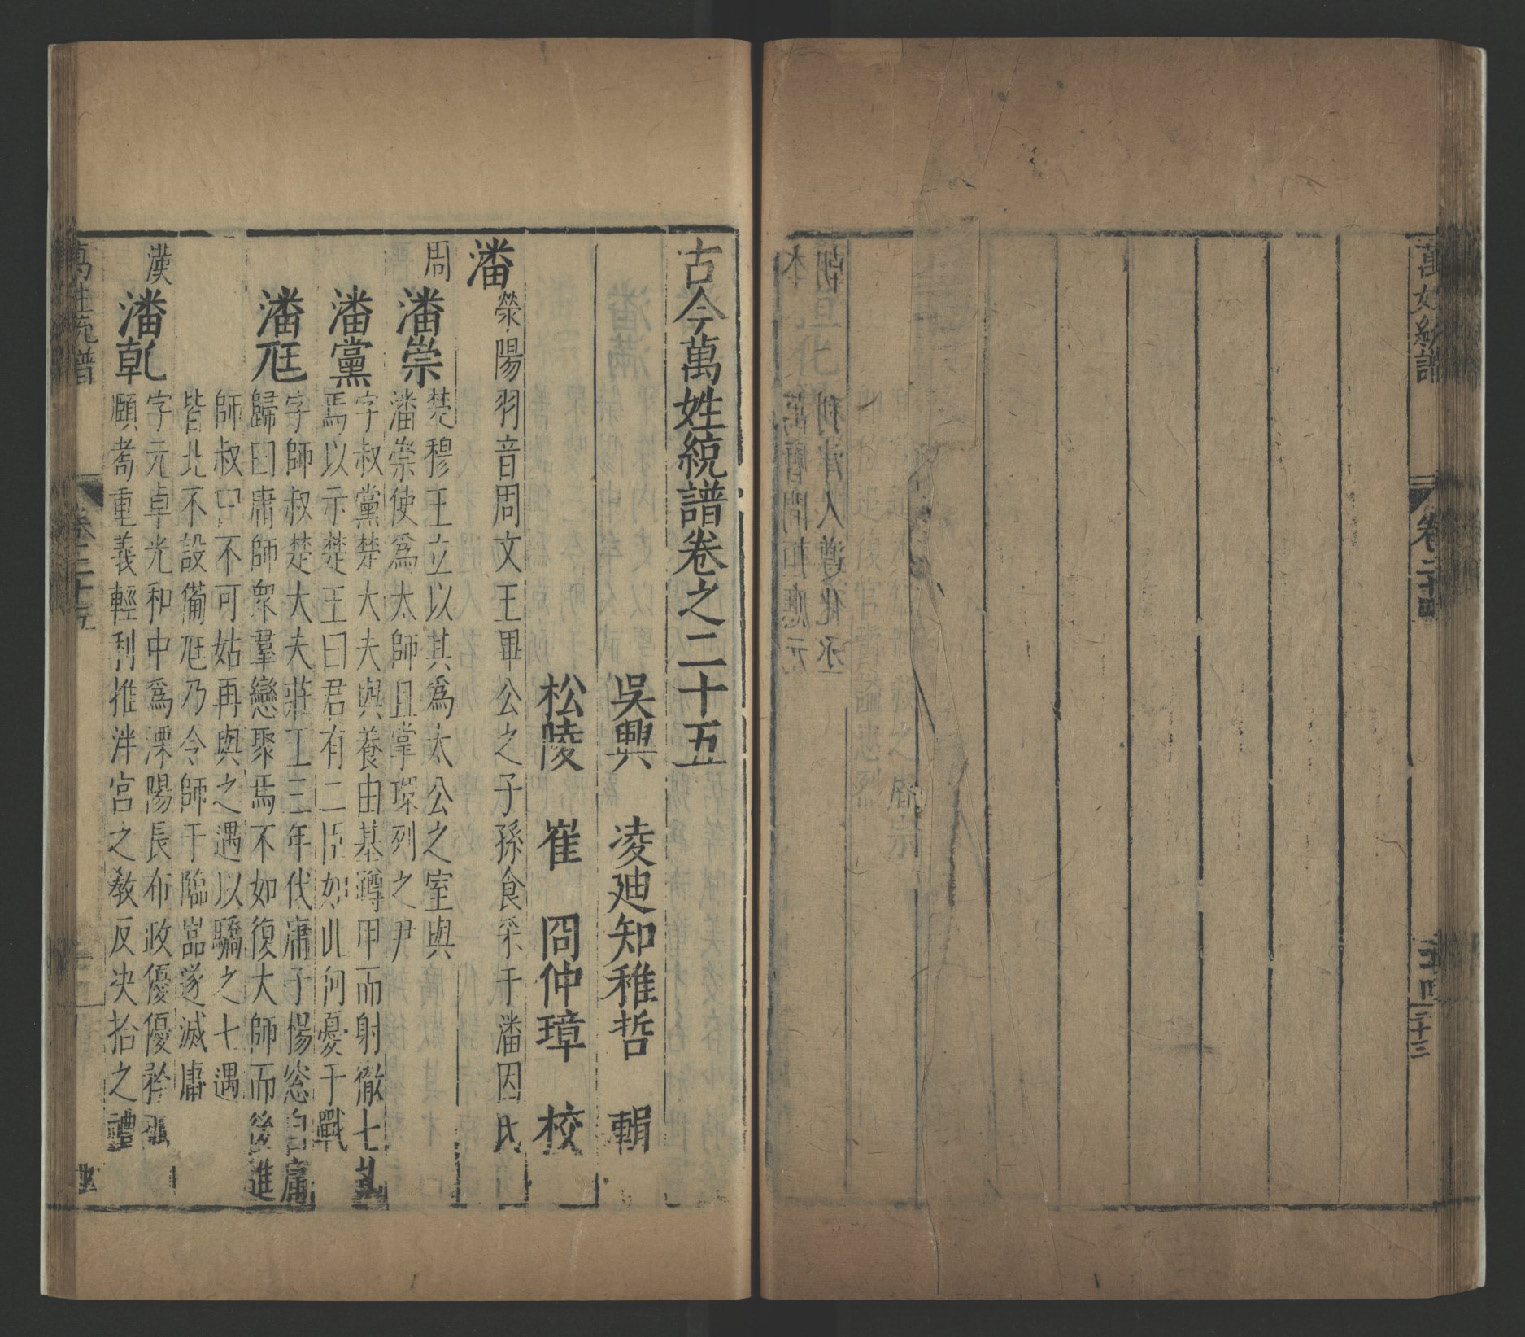 萬姓統譜
卷二十四
二十三
古今萬姓統譜卷之二十五
吳興 凌迪知稚哲 輯
松陵 崔冏仲璋 校
潘 滎陽羽音周文王畢公之子孫食采于潘因氏
周 潘崇 楚穆王立以其爲太公之室與
潘崇使爲太師且掌環列之尹
潘黨 字叔黨楚大夫與養由基蹲甲而射徹七札
焉以示楚王曰君有二臣如此何憂于戰
潘尫 字師叔楚大夫莊王三年伐庸子揚窓曰庸
歸曰庸師衆羣蠻聚焉不如復大師而後進
師叔曰不可姑再與之遇以驕之七遇
皆北不設備尫乃令師于臨品遂滅庸
漢 潘乹 字元卓光和中爲溧陽長布政優優矜孤
頤耆重義輕利推泮宮之敎反决拾之禮
萬姓統譜
卷二十五